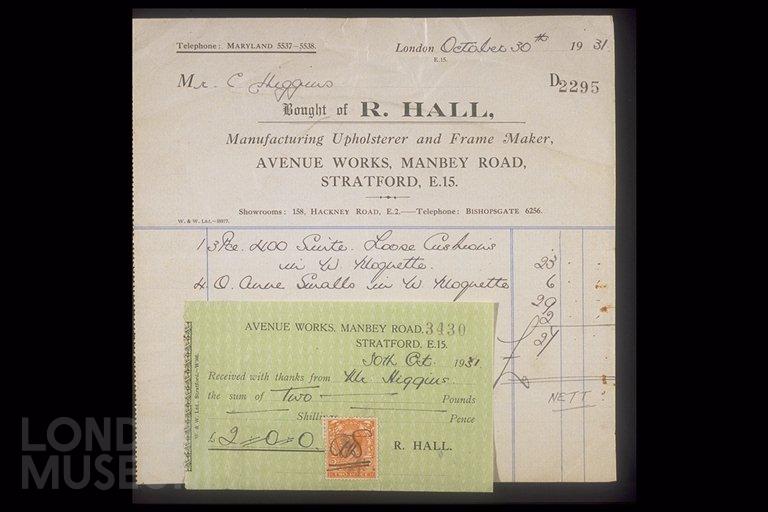 Telephone: MARYLAND 5537-5538.
London October 30th 1931.
E.15.
Mr. C Higgins
D2295
Bought of R. HALL,
Manufacturing Upholsterer and Frame Maker,
AVENUE WORKS, MANBEY ROAD,
STRATFORD, E.15.
Showrooms: 158, HACKNEY ROAD, E.2.—Telephone: BISHOPSGATE 6256.
W. & W. Ltd.
1 3 Pce. 400 Suite. Loose Cushions
in W Moquette. 23
4 Q. Anne Smalls in W Moquette 6
29
2
£ 27
NETT
AVENUE WORKS, MANBEY ROAD, 3430
STRATFORD, E.15.
30th Oct. 1931
Received with thanks from Mr Higgins
the sum of Two Pounds
Shillings Pence
£2=0=0.
R. HALL.
TWO PENCE
W. & W. Ltd., Stratford
LONDON
MUSEUM